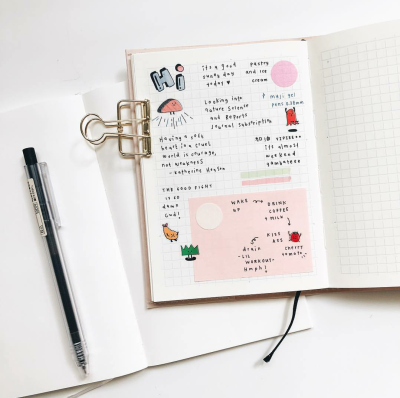 Hi
it's a good
sunny day
today
pastry
and ice
cream
Looking into
nature science
and Reports
Journal subscription
muji gel
pens 0.38mm
Having a soft
heart in a cruel
world is courage,
not weakness
- Katherine Henson
its almost
weekend
THE GOOD FIGHT
is so
damn
Good!
WAKE
UP
DRINK
COFFEE
+ MILK
KICK
ASS
cherry
tomato
drain
- LIL
WORKOUT -
Hmph!